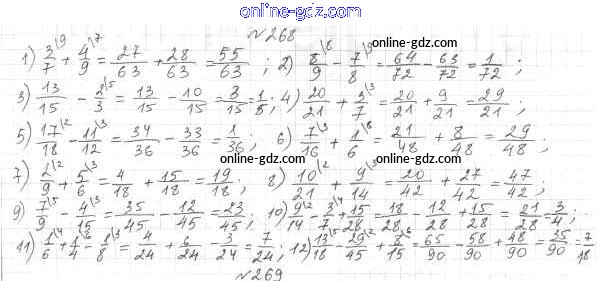 online-gdz.com
№268
1) 3/7|9 + 4/9|7 = 27/63 + 28/63 = 55/63 ; 2) 8/9|8 - 7/8|9 = 64/72 - 63/72 = 1/72 ;
online-gdz.com
3) 13/15 - 2/3|5 = 13/15 - 10/15 = 3/15 = 1/5 ; 4) 20/21 + 3/7|3 = 20/21 + 9/21 = 29/21 ;
online-gdz.com online-gdz.com
5) 17/18|2 - 11/12|3 = 34/36 - 33/36 = 1/36 ; 6) 7/16|3 + 1/6|8 = 21/48 + 8/48 = 29/48 ;
online-gdz.com online-gdz.com
7) 2/9|2 + 5/6|3 = 4/18 + 15/18 = 19/18 ; 8) 10/21|2 + 9/14|3 = 20/42 + 27/42 = 47/42 ;
9) 7/9|5 - 4/15|3 = 35/45 - 12/45 = 23/45 ; 10) 9/14|2 - 3/7|4 + 15/28 = 18/28 - 12/28 + 15/28 = 21/28 = 3/4 ;
online-gdz.com
11) 1/6|4 + 1/4|6 - 1/8|3 = 4/24 + 6/24 - 3/24 = 7/24 ; 12) 13/18|5 - 29/45|2 + 8/15|6 = 65/90 - 58/90 + 48/90 = 35/90 = 7/18
online-gdz.com
№269